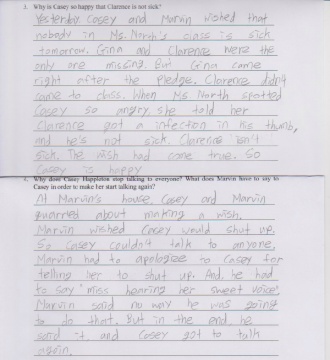 3. Why is Casey so happy that Clarence is not sick?
Yesterday Casey and Marvin wished that
nobody in Ms. North's class is sick
tomorrow. Gina and Clarence were the
only one missing. But Gina came
right after the Pledge. Clarence didn't
came to class. When Ms North spotted
Casey so angry, she told her
Clarence got a infection in his thumb,
and he's not sick. Clarence isn't
sick. The wish had come true. So
Casey is happy
Why does Casey Happleton stop talking to everyone? What does Marvin have to say to
Casey in order to make her start talking again?
At Marvin's house, Casey and Marvin
quarried about making a wish.
Marvin wished Casey would shut up.
So Casey couldn't talk to anyone,
Marvin had to apologise to Casey for
telling her to shut up. And, he had
to say "miss hearing her sweet voice".
Marvin said no way he was going
to do that. But in the end, he
said it, and Casey got to talk
again.